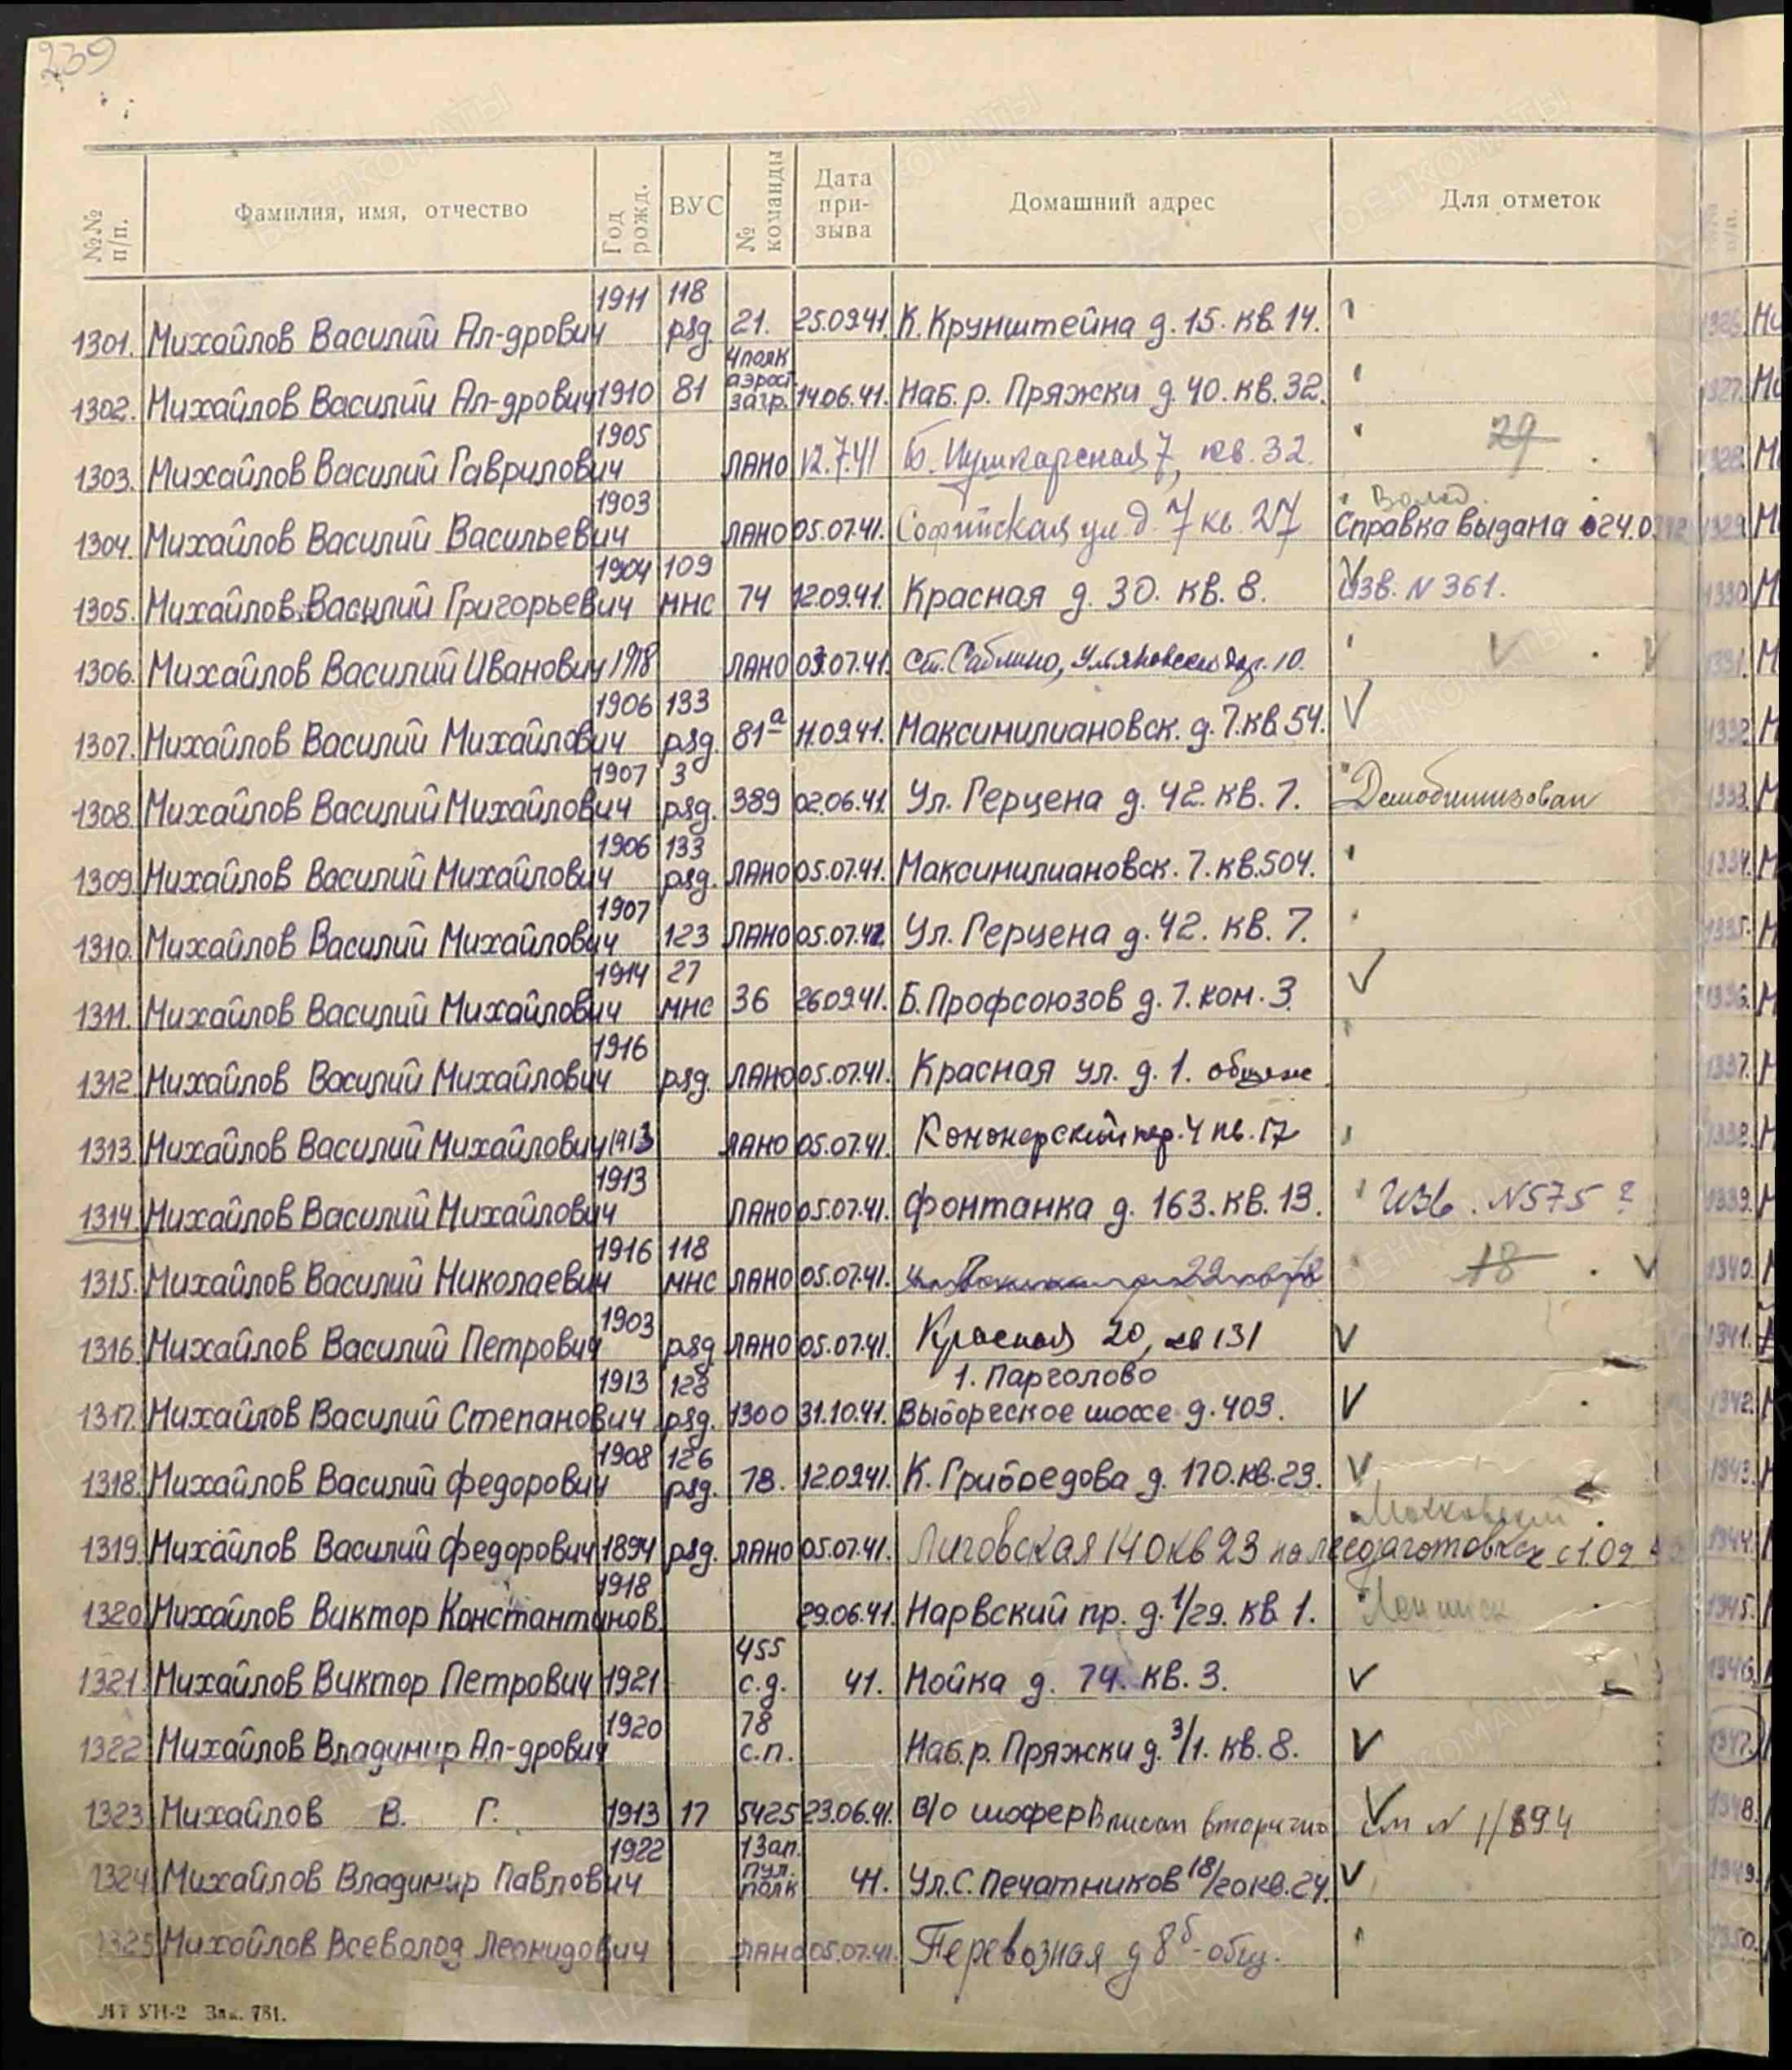 239
№№ п/п. Фамилия, имя, отчество Год рожд. ВУС № команды Дата при-зыва Домашний адрес Для отметок
1301. Михайлов Василий Ал-дрович 1911 118 ряд. 21. 25.09.41. К. Крунштейна д. 15. кв. 14.
1302. Михайлов Василий Ал-дрович 1910 81 4 полк аэрост. загр. 14.06.41. Наб. р. Пряжки д. 40. кв. 32.
1303. Михайлов Василий Гаврилович 1905 ЛАНО 12.7.41 Б. Пушкарская 7, кв. 32. 29
1304. Михайлов Василий Васильевич 1903 ЛАНО 05.07.41. Софийская ул д. 7 кв. 27 Волод. Справка выдана 24.0
1305. Михайлов Василий Григорьевич 1904 109 мнс 74 12.09.41. Красная д. 30. кв. 8. Изв. N 361.
1306. Михайлов Василий Иванович 1918 ЛАНО 03.07.41. ст. Саблино, 10.
1307. Михайлов Василий Михайлович 1906 133 ряд. 81а 11.09.41. Максимилиановск. д. 7. кв. 54.
1308. Михайлов Василий Михайлович 1907 3 ряд. 389 02.06.41. Ул. Герцена д. 42. кв. 7. Демобилизован
1309. Михайлов Василий Михайлович 1906 133 ряд. ЛАНО 05.07.41. Максимилиановск. 7. кв. 504.
1310. Михайлов Василий Михайлович 1907 123 ЛАНО 05.07.41 Ул. Герцена д. 42. кв. 7.
1311. Михайлов Василий Михайлович 1914 27 мнс 36 26.09.41. Б. Профсоюзов д. 7. ком. 3
1312. Михайлов Василий Михайлович 1916 ряд. ЛАНО 05.07.41. Красная ул. д. 1. общеж
1313. Михайлов Василий Михайлович 1913 ЛАНО 05.07.41. пер. 4 кв. 17
1314. Михайлов Василий Михайлович 1913 ЛАНО 05.07.41. Фонтанка д. 163. кв. 13. Изв. N575 ?
1315. Михайлов Василий Николаевич 1916 118 мнс ЛАНО 05.07.41. 18
1316. Михайлов Василий Петрович 1903 ряд ЛАНО 05.07.41. Красная 20, кв 131
1317. Михайлов Василий Степанович 1913 128 ряд. 1300 31.10.41. 1. Парголово Выборгское шоссе д. 403.
1318. Михайлов Василий Федорович 1908 126 ряд. 78. 12.09.41. К. Грибоедова д. 170. кв. 23.
1319. Михайлов Василий Федорович 1894 ряд. ЛАНО 05.07.41. Лиговская 140 кв 23 на лесозаготовках с 1.02 Московский
1320. Михайлов Виктор Константинов. 1918 29.06.41. Нарвский пр. д. 1/29. кв. 1. Ленинск
1321. Михайлов Виктор Петрович 1921 455 с.д. 41. Мойка д. 74. кв. 3.
1322. Михайлов Владимир Ал-дрович 1920 78 с.п. Наб. р. Пряжки д. 3/1. кв. 8.
1323. Михайлов В. Г. 1913 17 5425 23.06.41. В/О шофер Вписан вторично см N 1/894
1324. Михайлов Владимир Павлович 1922 1 зап. пул. полк 41. Ул. С. Печатников 18/20 кв. 24.
1325. Михайлов Всеволод Леонидович ЛАНО 05.07.41. Перевозная д 8б - общ.
ЛТ УН-2 Зак. 781.